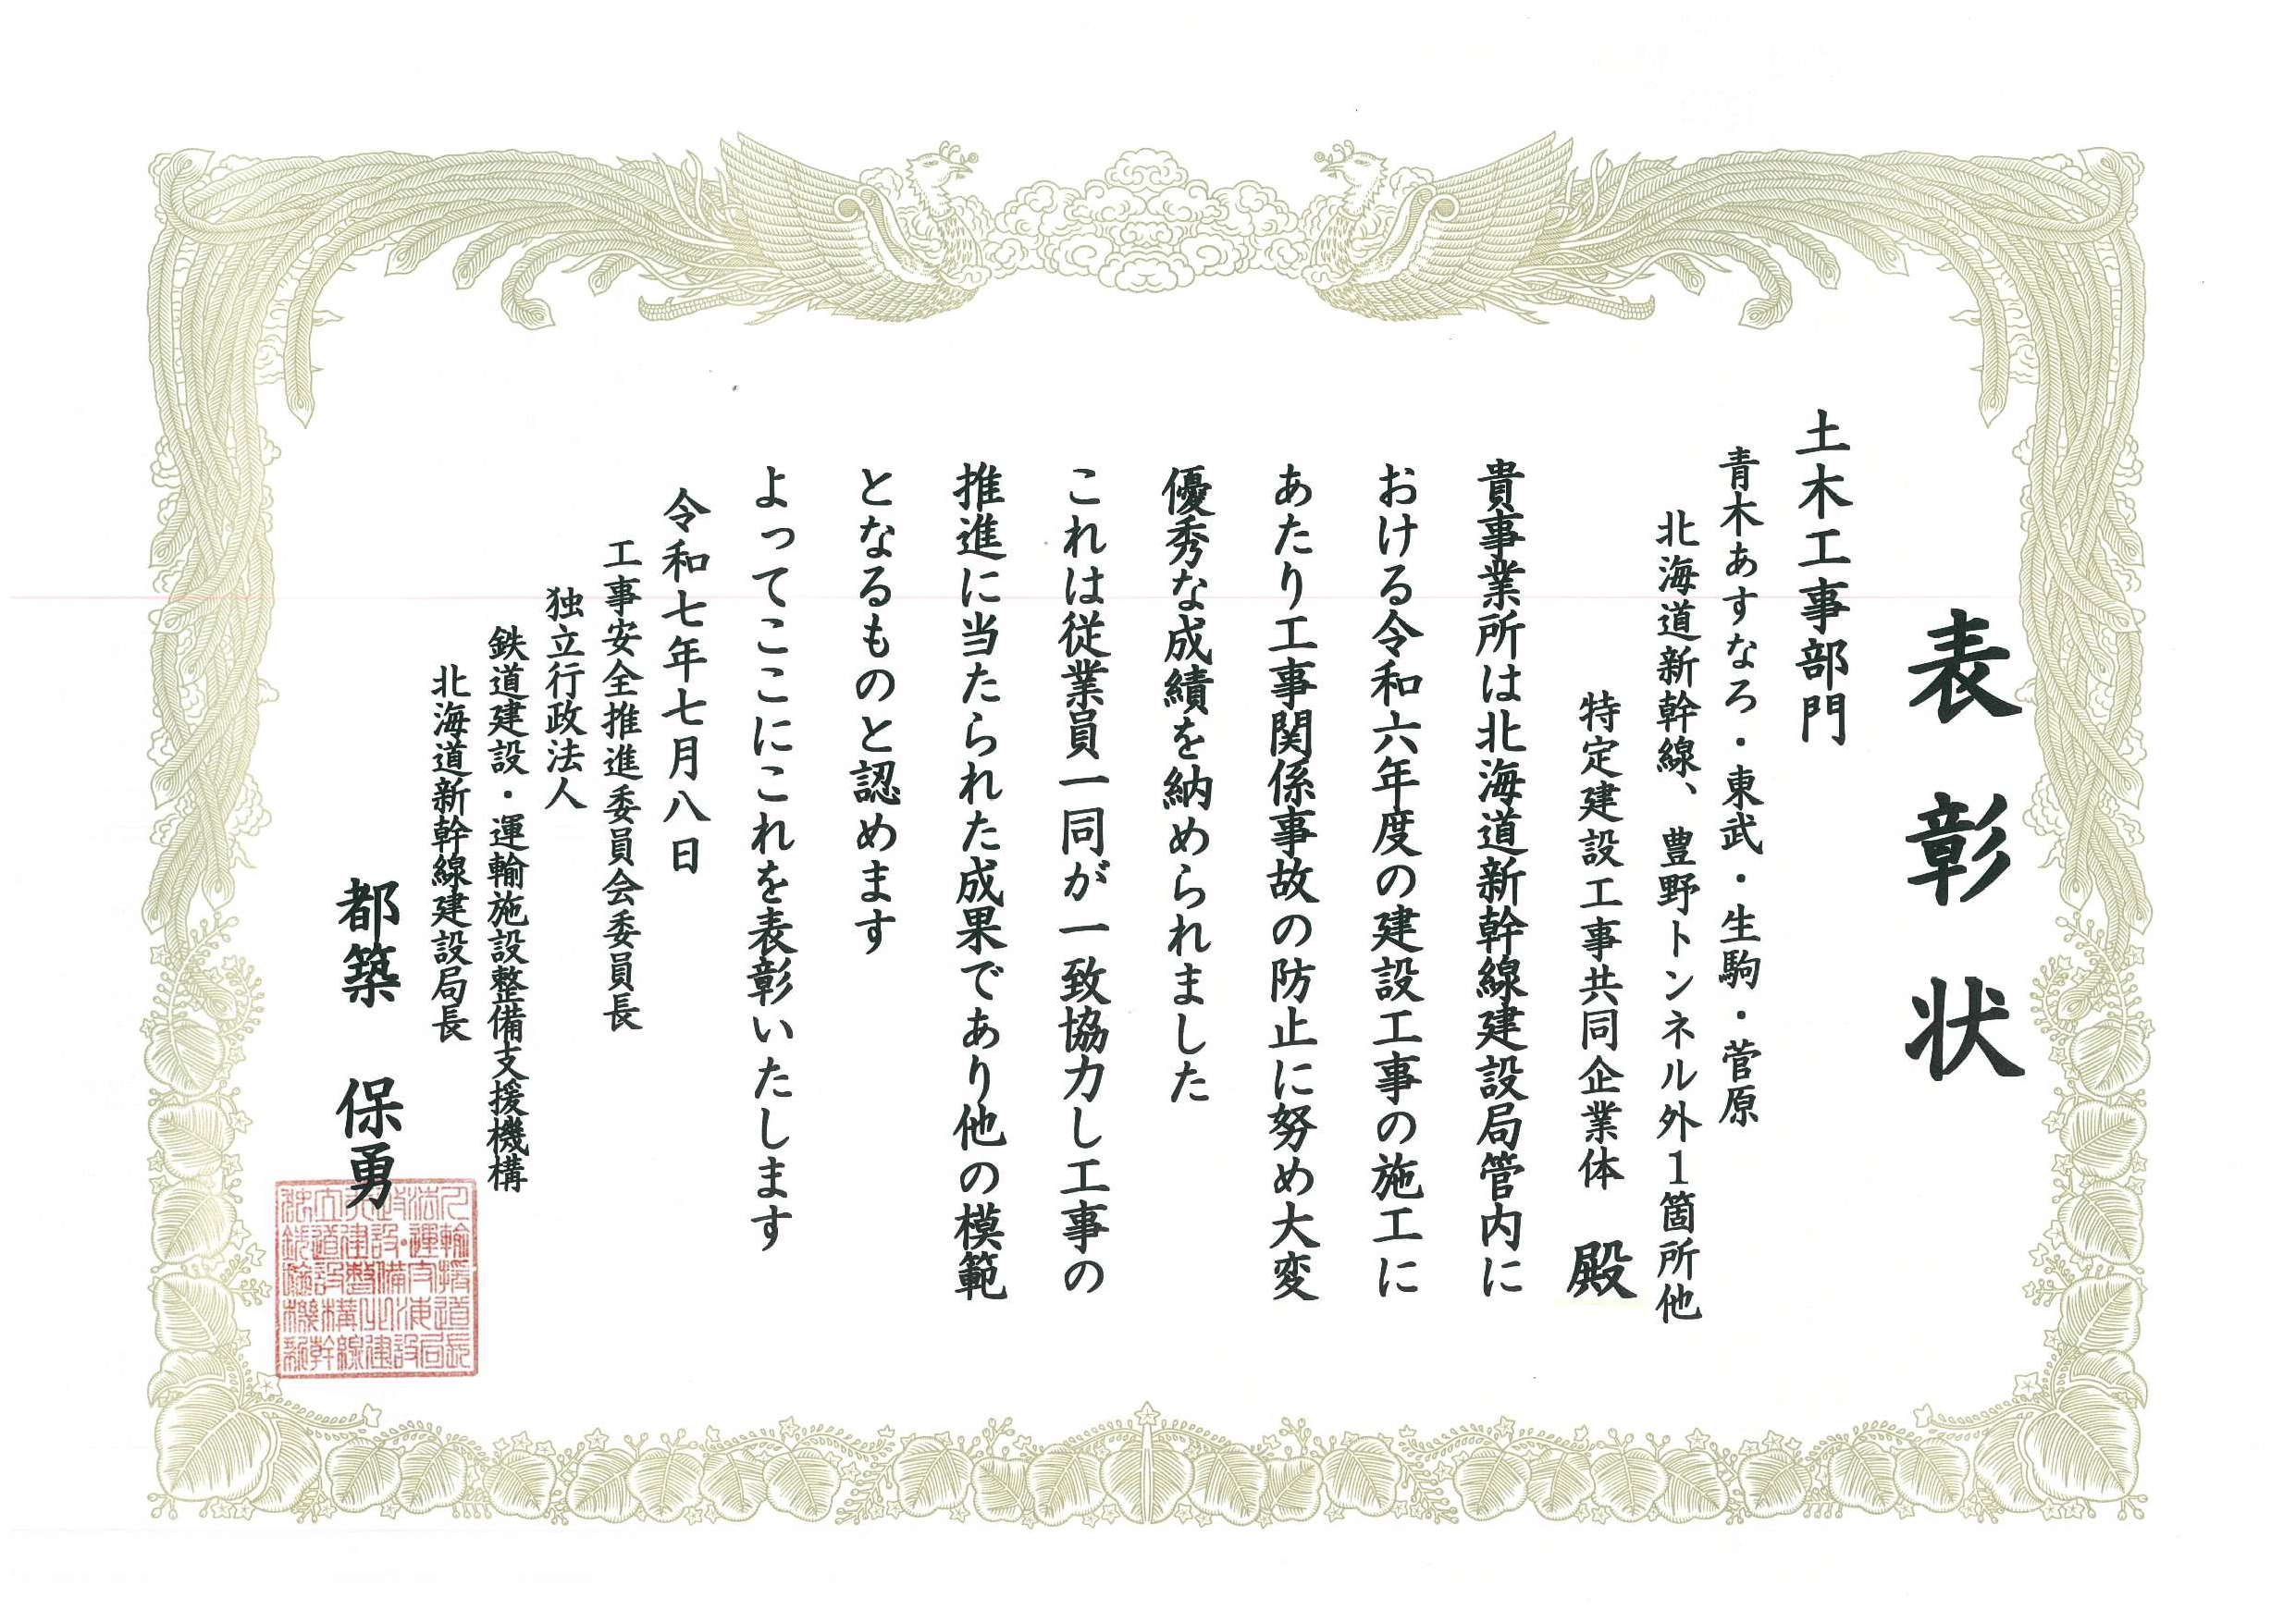 表彰状
土木工事部門
青木あすなろ・東武・生駒・菅原
北海道新幹線、豊野トンネル外１箇所他
特定建設工事共同企業体　殿
貴事業所は北海道新幹線建設局管内に
おける令和六年度の建設工事の施工に
あたり工事関係事故の防止に努め大変
優秀な成績を納められました
これは従業員一同が一致協力し工事の
推進に当たられた成果であり他の模範
となるものと認めます
よってここにこれを表彰いたします
令和七年七月八日
工事安全推進委員会委員長
独立行政法人
鉄道建設・運輸施設整備支援機構
北海道新幹線建設局長
都築　保勇